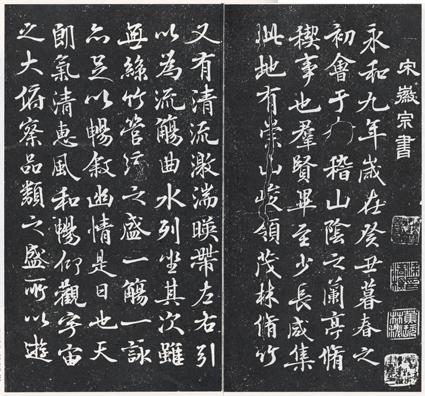 宋徽宗書
永和九年歲在癸丑暮春之
初會于會稽山陰之蘭亭脩
禊事也羣賢畢至少長咸集
此地有崇山峻領茂林脩竹
又有清流激湍暎帶左右引
以為流觴曲水列坐其次雖
無絲竹管弦之盛一觴一詠
亦足以暢敘幽情是日也天
朗氣清惠風和暢仰觀宇宙
之大俯察品類之盛所以遊